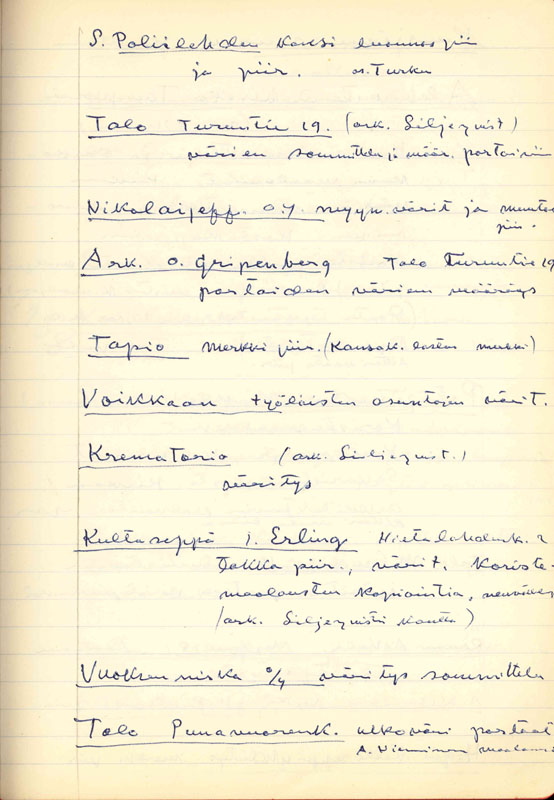 S. Poliilehden kansi luonnos piir
ja piir. os. Turku
Talo Turuntie 19. (ark. Siljeqvist)
värien sommittelu ja määr. portaisiin
Nikolaijeff. o.y. myyn. värit ja muutos
piir.
Ark. O. Gripenberg Talo Turuntie 19
portaiden värien määräys
Tapio merkki piir. (Kansak. lasten merkki)
Voikkaan työläisten asuntojen värit.
Krematorio (ark. Siljeqvist.)
väritys
Kultaseppä Erling Hietalahdenk. 2
Takka piir., värit. Koriste-
maalausten kopiointia,
(ark. Siljeqvisti kautta)
Vuoksenniska o/y väritys sommittelu
Talo Punavuorenk. ulkoväri portaat
A. Nieminen